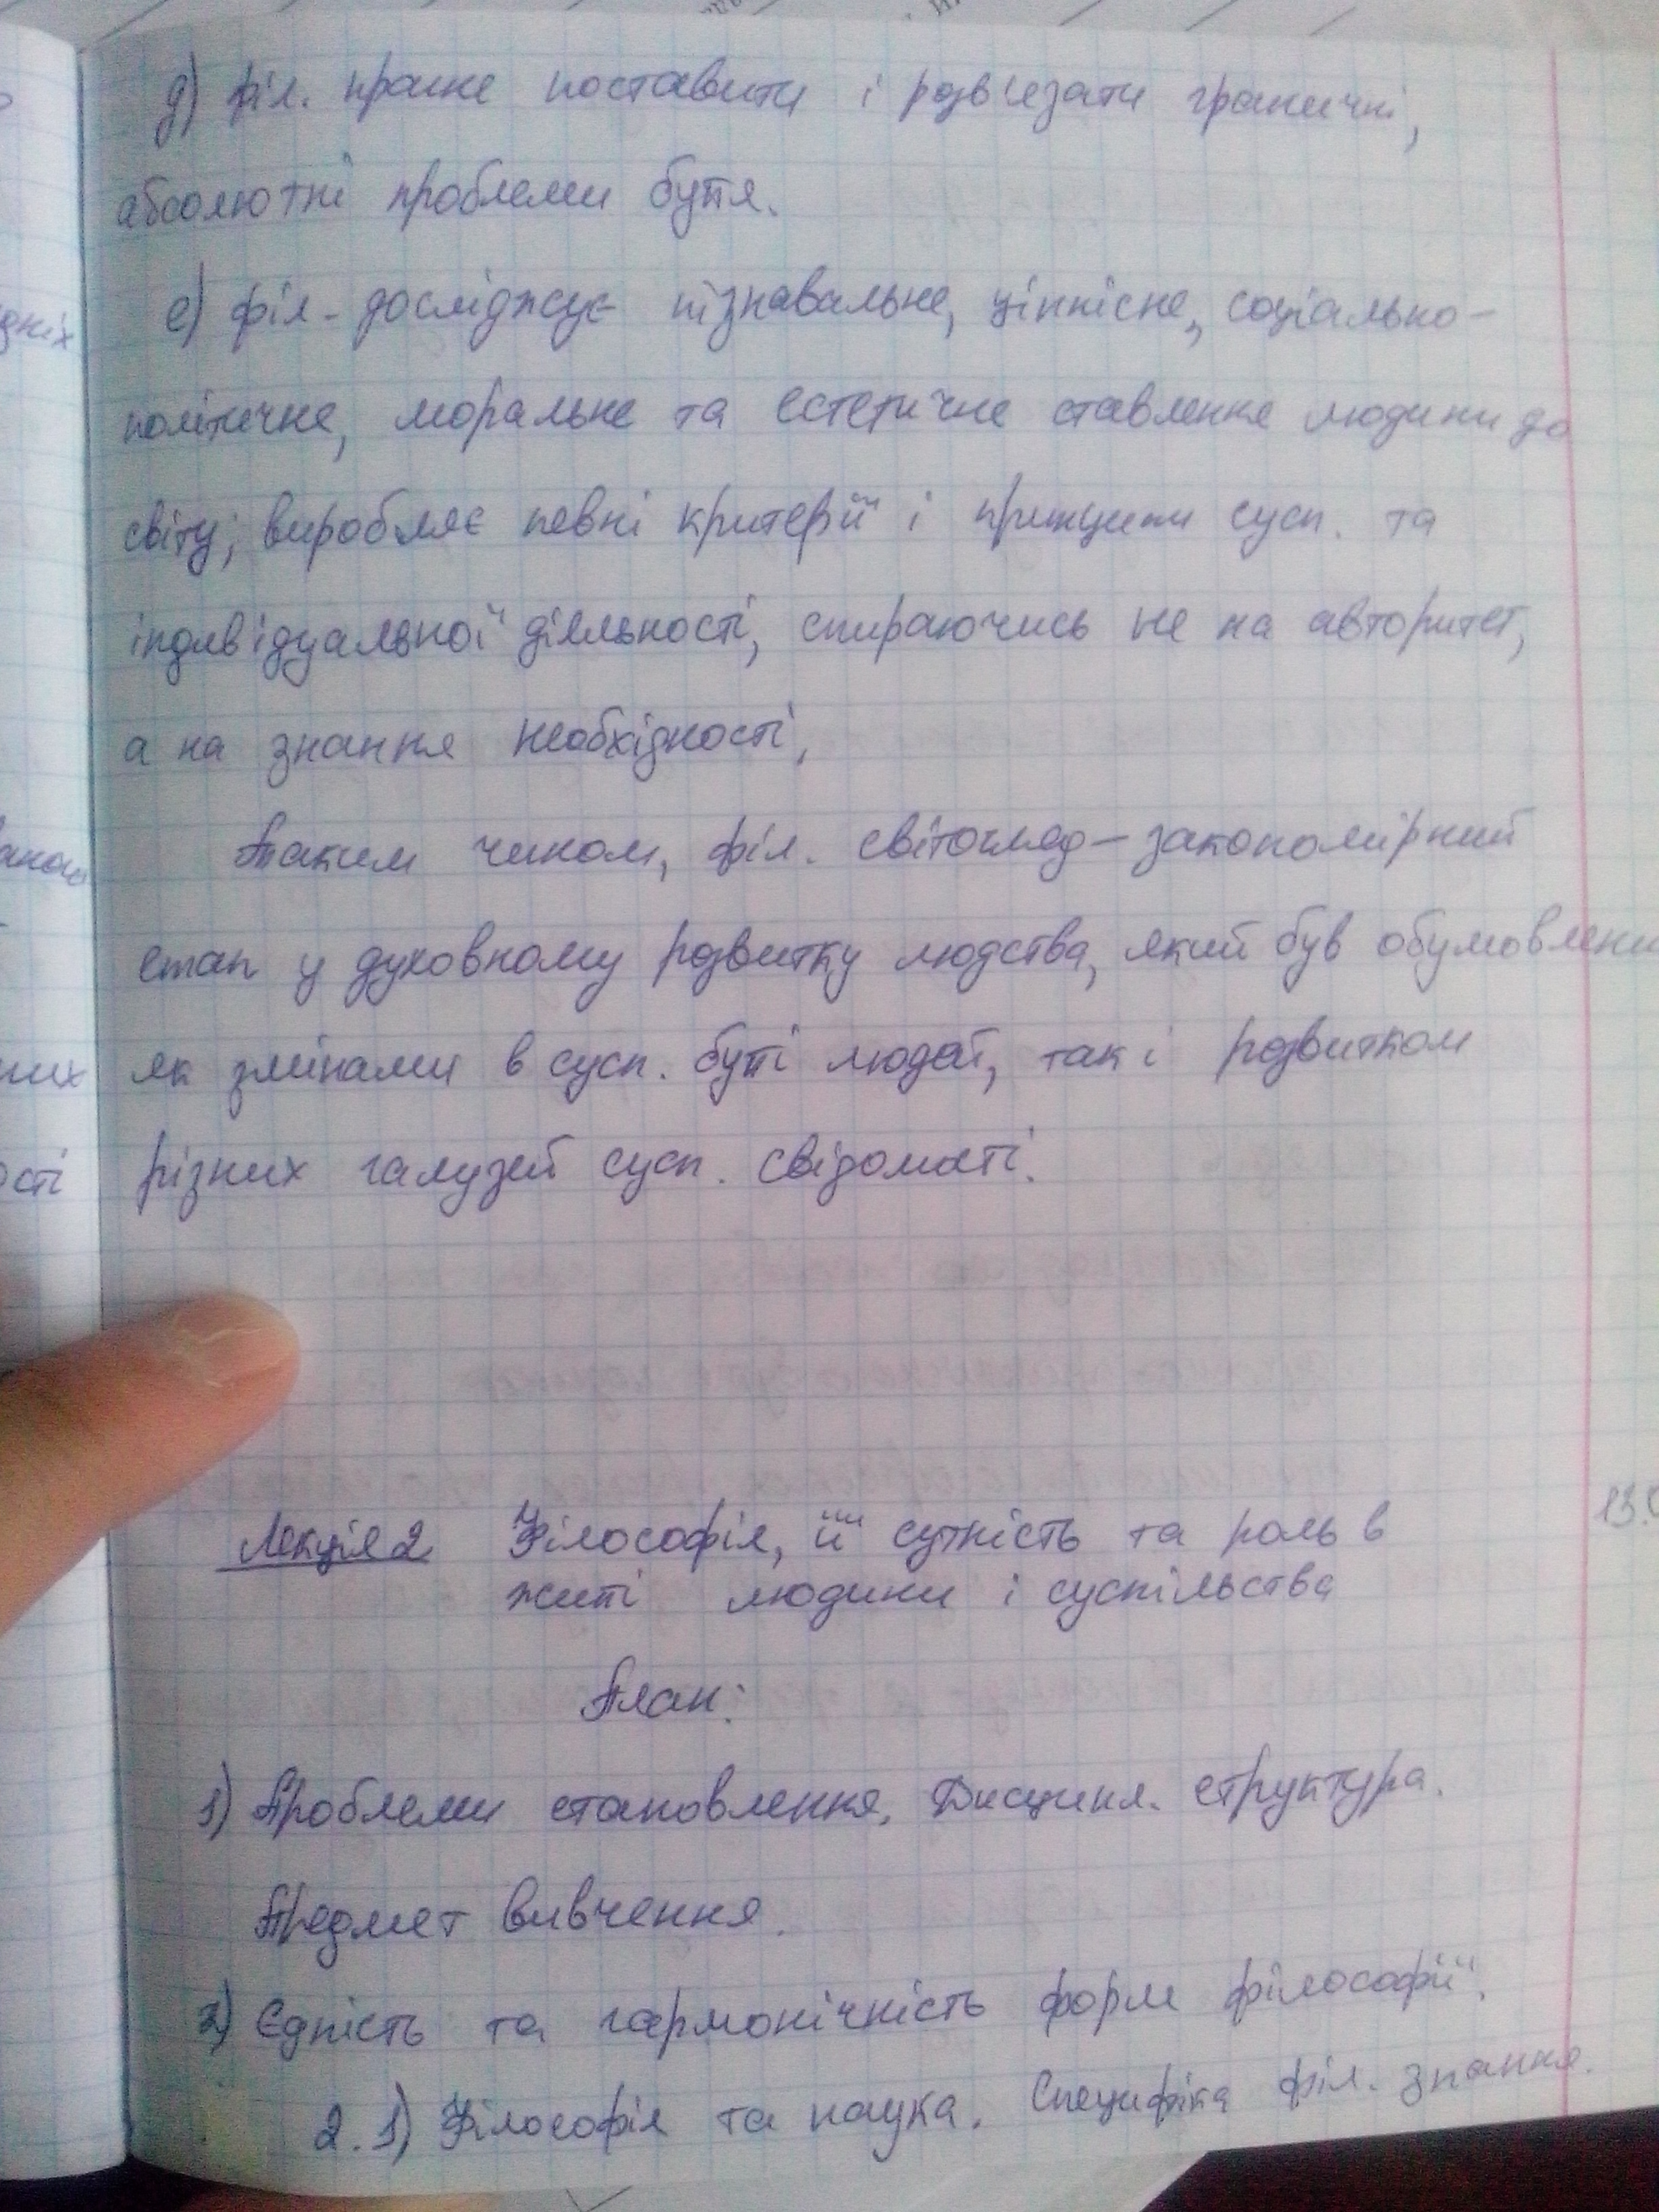 д) філ. прагне поставити і розв'язати граничні,
абсолютні проблеми буття.
е) філ. досліджує пізнавальне, ціннісне, соціально-
політичне, моральне та естетичне ставлення людини до
світу; виробляє певні критерії і принципи сусп. та
індивідуальної діяльності, спираючись не на авторитет,
а на знання необхідності,
Таким чином, філ. світогляд – закономірний
етап у духовному розвитку людства, який був обумовлени
як змінами в сусп. бутті людей, так і розвитком
різних галузей сусп. свідомості.
Лекція 2 Філософія, її сутність та роль в
житті людини і суспільства
План:
1) Проблеми становлення. Дисципл. структура.
Предмет вивчення.
2) Єдність та гармонічність форм філософії.
2.1) Філософія та наука. Специфіка філ. знання.